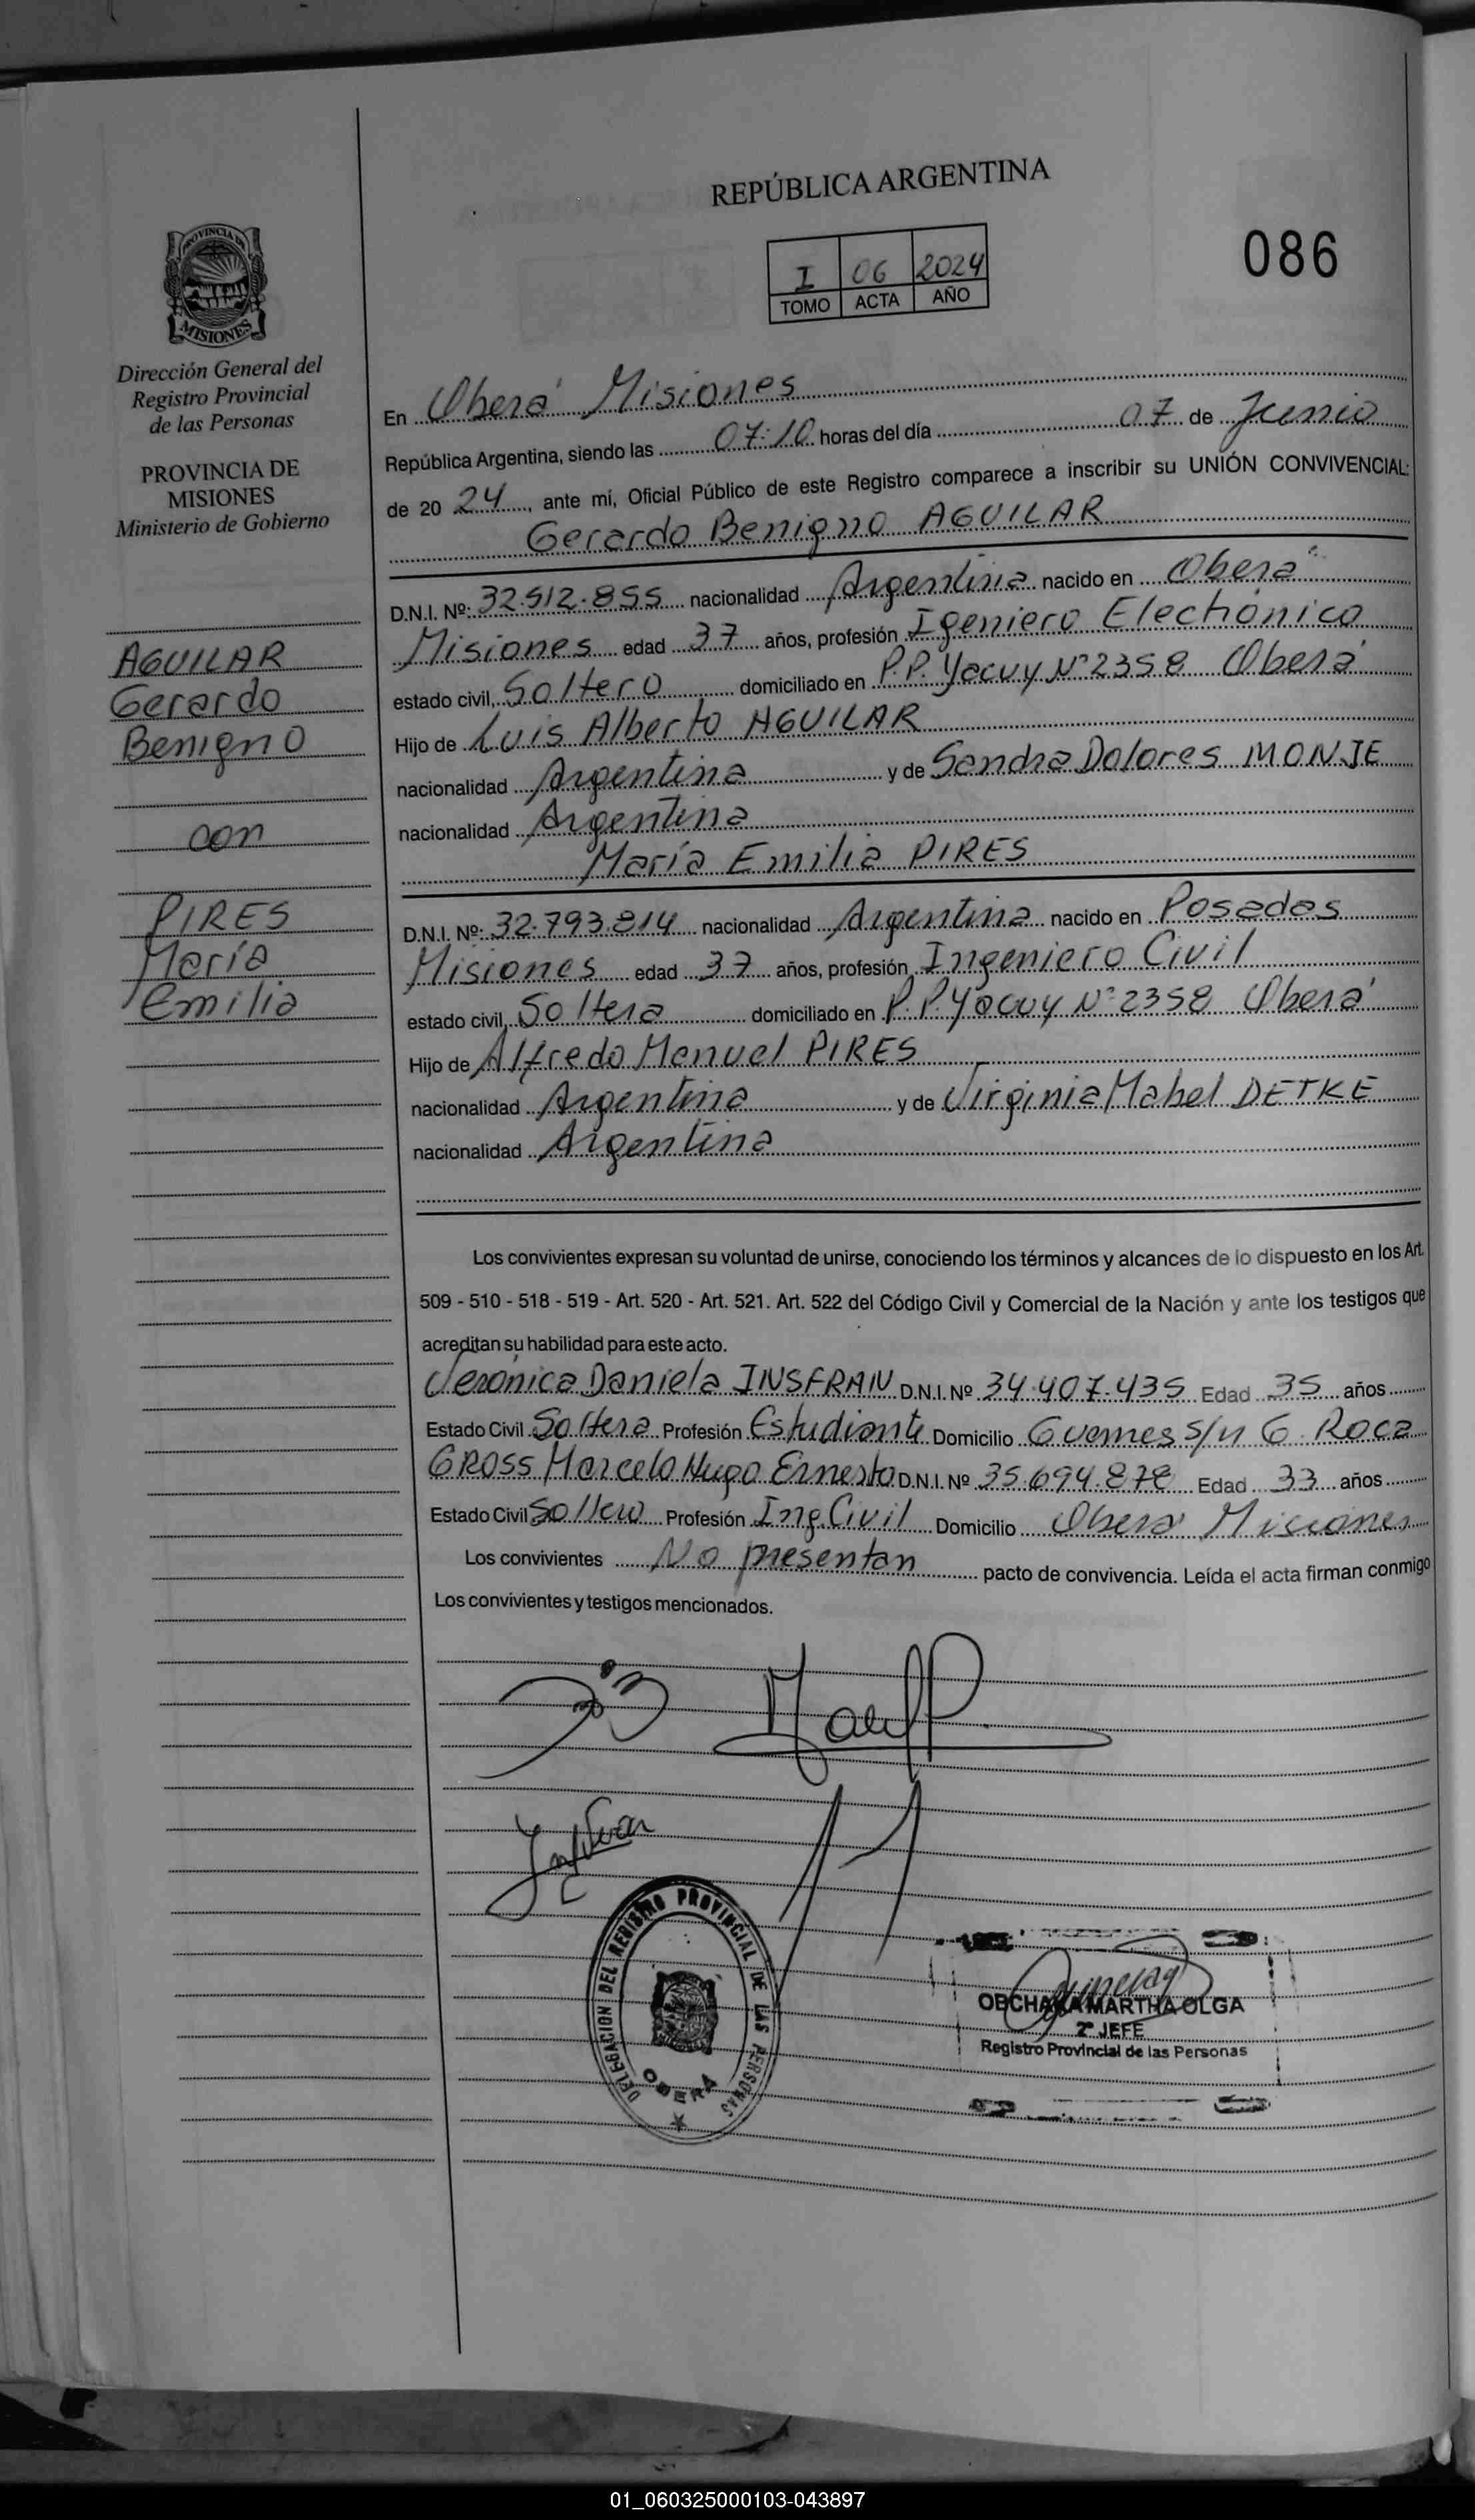 REPÚBLICA ARGENTINA
I 06 2024
TOMO ACTA AÑO
086
PROVINCIA DE
MISIONES
Dirección General del
Registro Provincial
de las Personas
PROVINCIA DE
MISIONES
Ministerio de Gobierno
AGUILAR
Gerardo
Benigno
con
PIRES
María
Emilia
En Oberá Misiones
República Argentina, siendo las 07:10 horas del día 07 de Junio
de 20 24, ante mí, Oficial Público de este Registro comparece a inscribir su UNIÓN CONVIVENCIAL:
Gerardo Benigno AGUILAR
D.N.I. Nº: 32.512.855 nacionalidad Argentina nacido en Oberá
Misiones edad 37 años, profesión Igeniero Electrónico
estado civil, Soltero domiciliado en P.P. Yacuy Nº 2358 Oberá
Hijo de Luis Alberto AGUILAR
nacionalidad Argentina y de Sandra Dolores MONJE
nacionalidad Argentina
María Emilia PIRES
D.N.I. Nº: 32.793.814 nacionalidad Argentina nacido en Posadas
Misiones edad 37 años, profesión Ingeniero Civil
estado civil, Soltera domiciliado en P.P. Yacuy Nº 2358 Oberá
Hijo de Alfredo Manuel PIRES
nacionalidad Argentina y de Virginia Mabel DETKE
nacionalidad Argentina
Los convivientes expresan su voluntad de unirse, conociendo los términos y alcances de lo dispuesto en los Art.
509 - 510 - 518 - 519 - Art. 520 - Art. 521. Art. 522 del Código Civil y Comercial de la Nación y ante los testigos que
acreditan su habilidad para este acto.
Verónica Daniela INSFRAN D.N.I. Nº 34.407.435 Edad 35 años
Estado Civil Soltera Profesión Estudiante Domicilio Guemes s/n G. Roca
GROSS Marcelo Hugo Ernesto D.N.I. Nº 35.694.878 Edad 33 años
Estado Civil Soltero Profesión Ing. Civil Domicilio Oberá Misiones
Los convivientes No presentan pacto de convivencia. Leída el acta firman conmigo
Los convivientes y testigos mencionados.
DELEGACION DEL REGISTRO PROVINCIAL DE LAS PERSONAS
OBERA
MARTHA OLGA
2º JEFE
Registro Provincial de las Personas
01_060325000103-043897